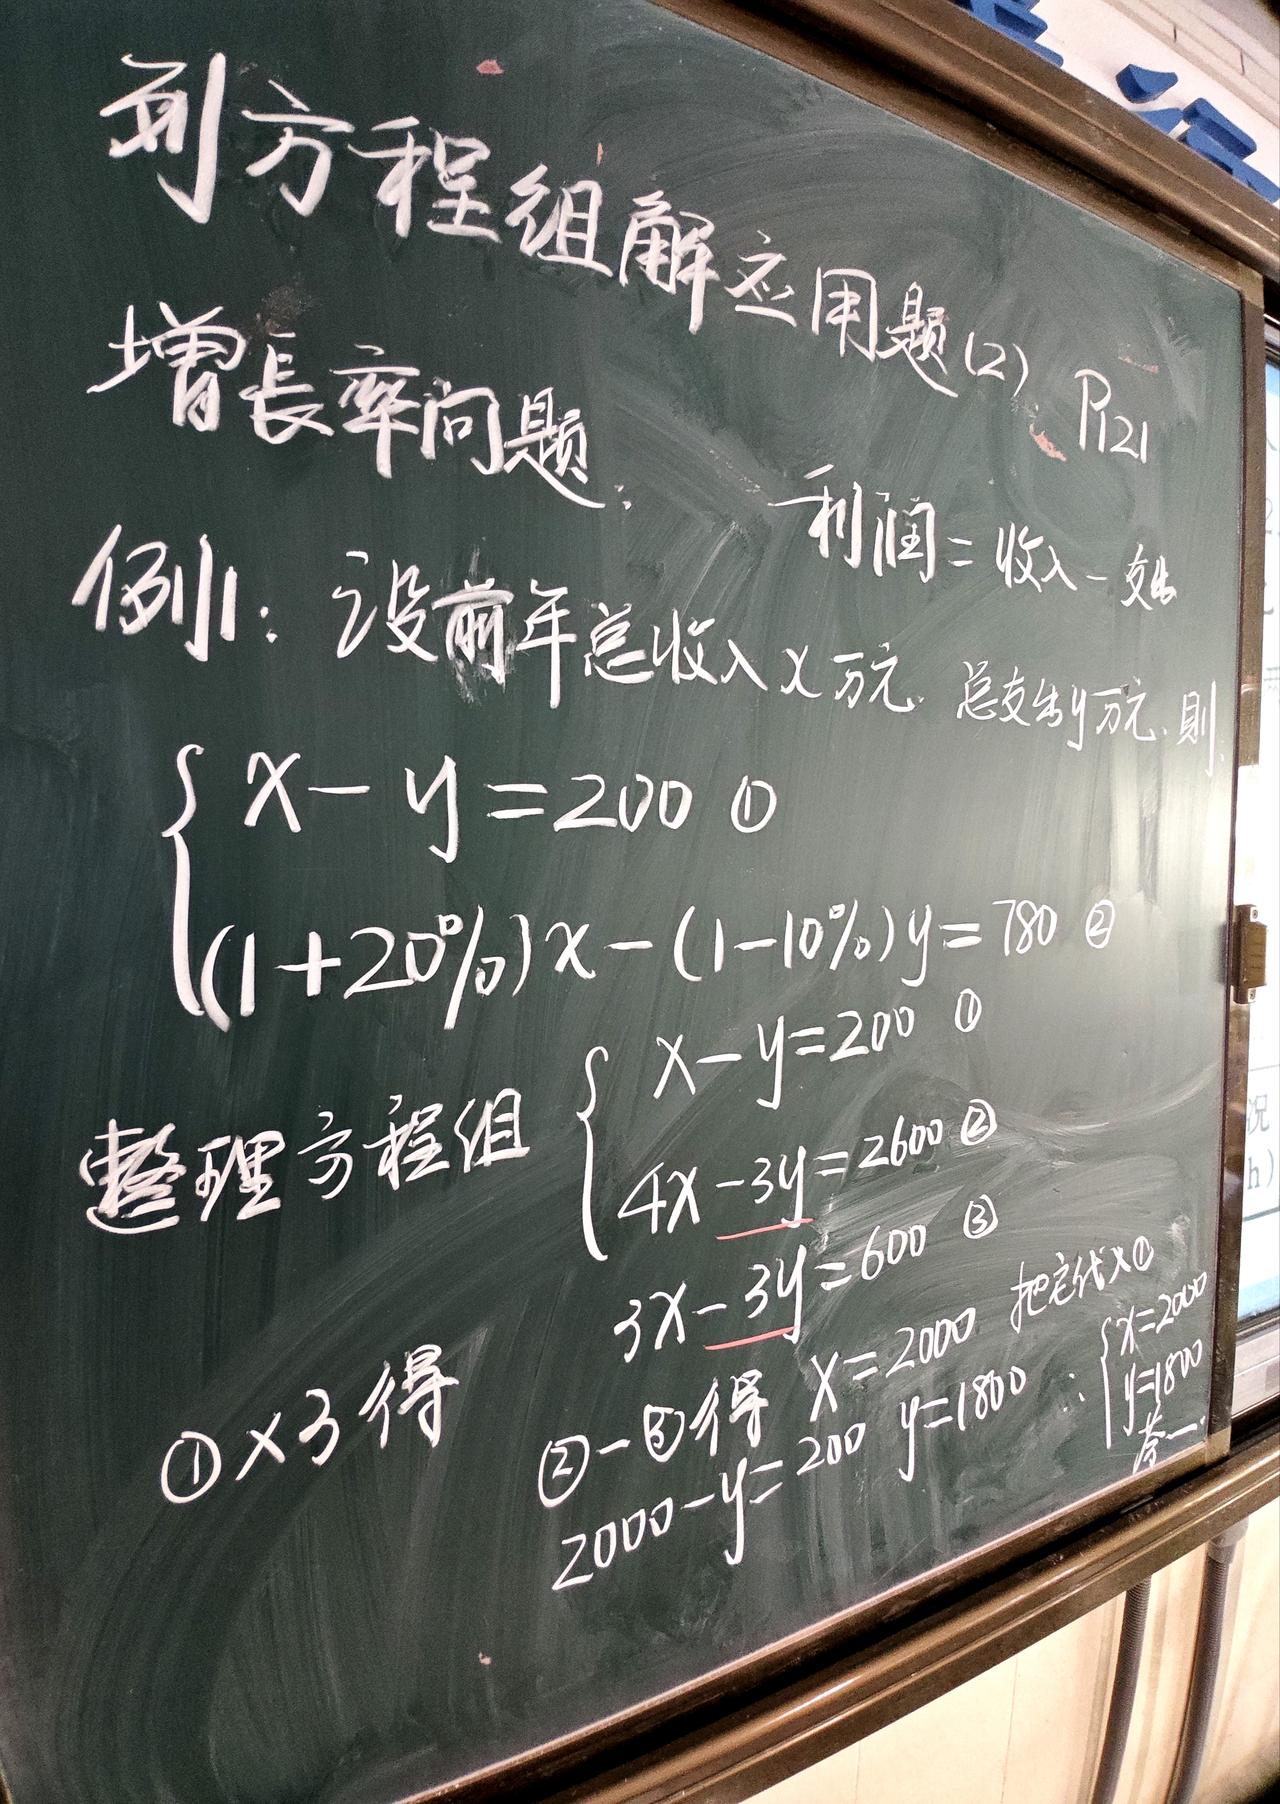 列方程组解应用题(2) P121
增长率问题:
利润=收入-支出
例1: 设前年总收入x万元. 总支出y万元.则
x-y=200 ①
(1+20%)x-(1-10%)y=780 ②
整理方程组
x-y=200 ①
4x-3y=2600 ②
①×3得 3x-3y=600 ③
②-③得 x=2000 把它代入①
2000-y=200 y=1800 ∴ x=2000
y=1800
答一.
况
h)